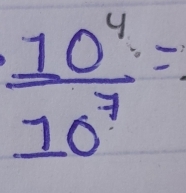 10⁴ =
10⁷